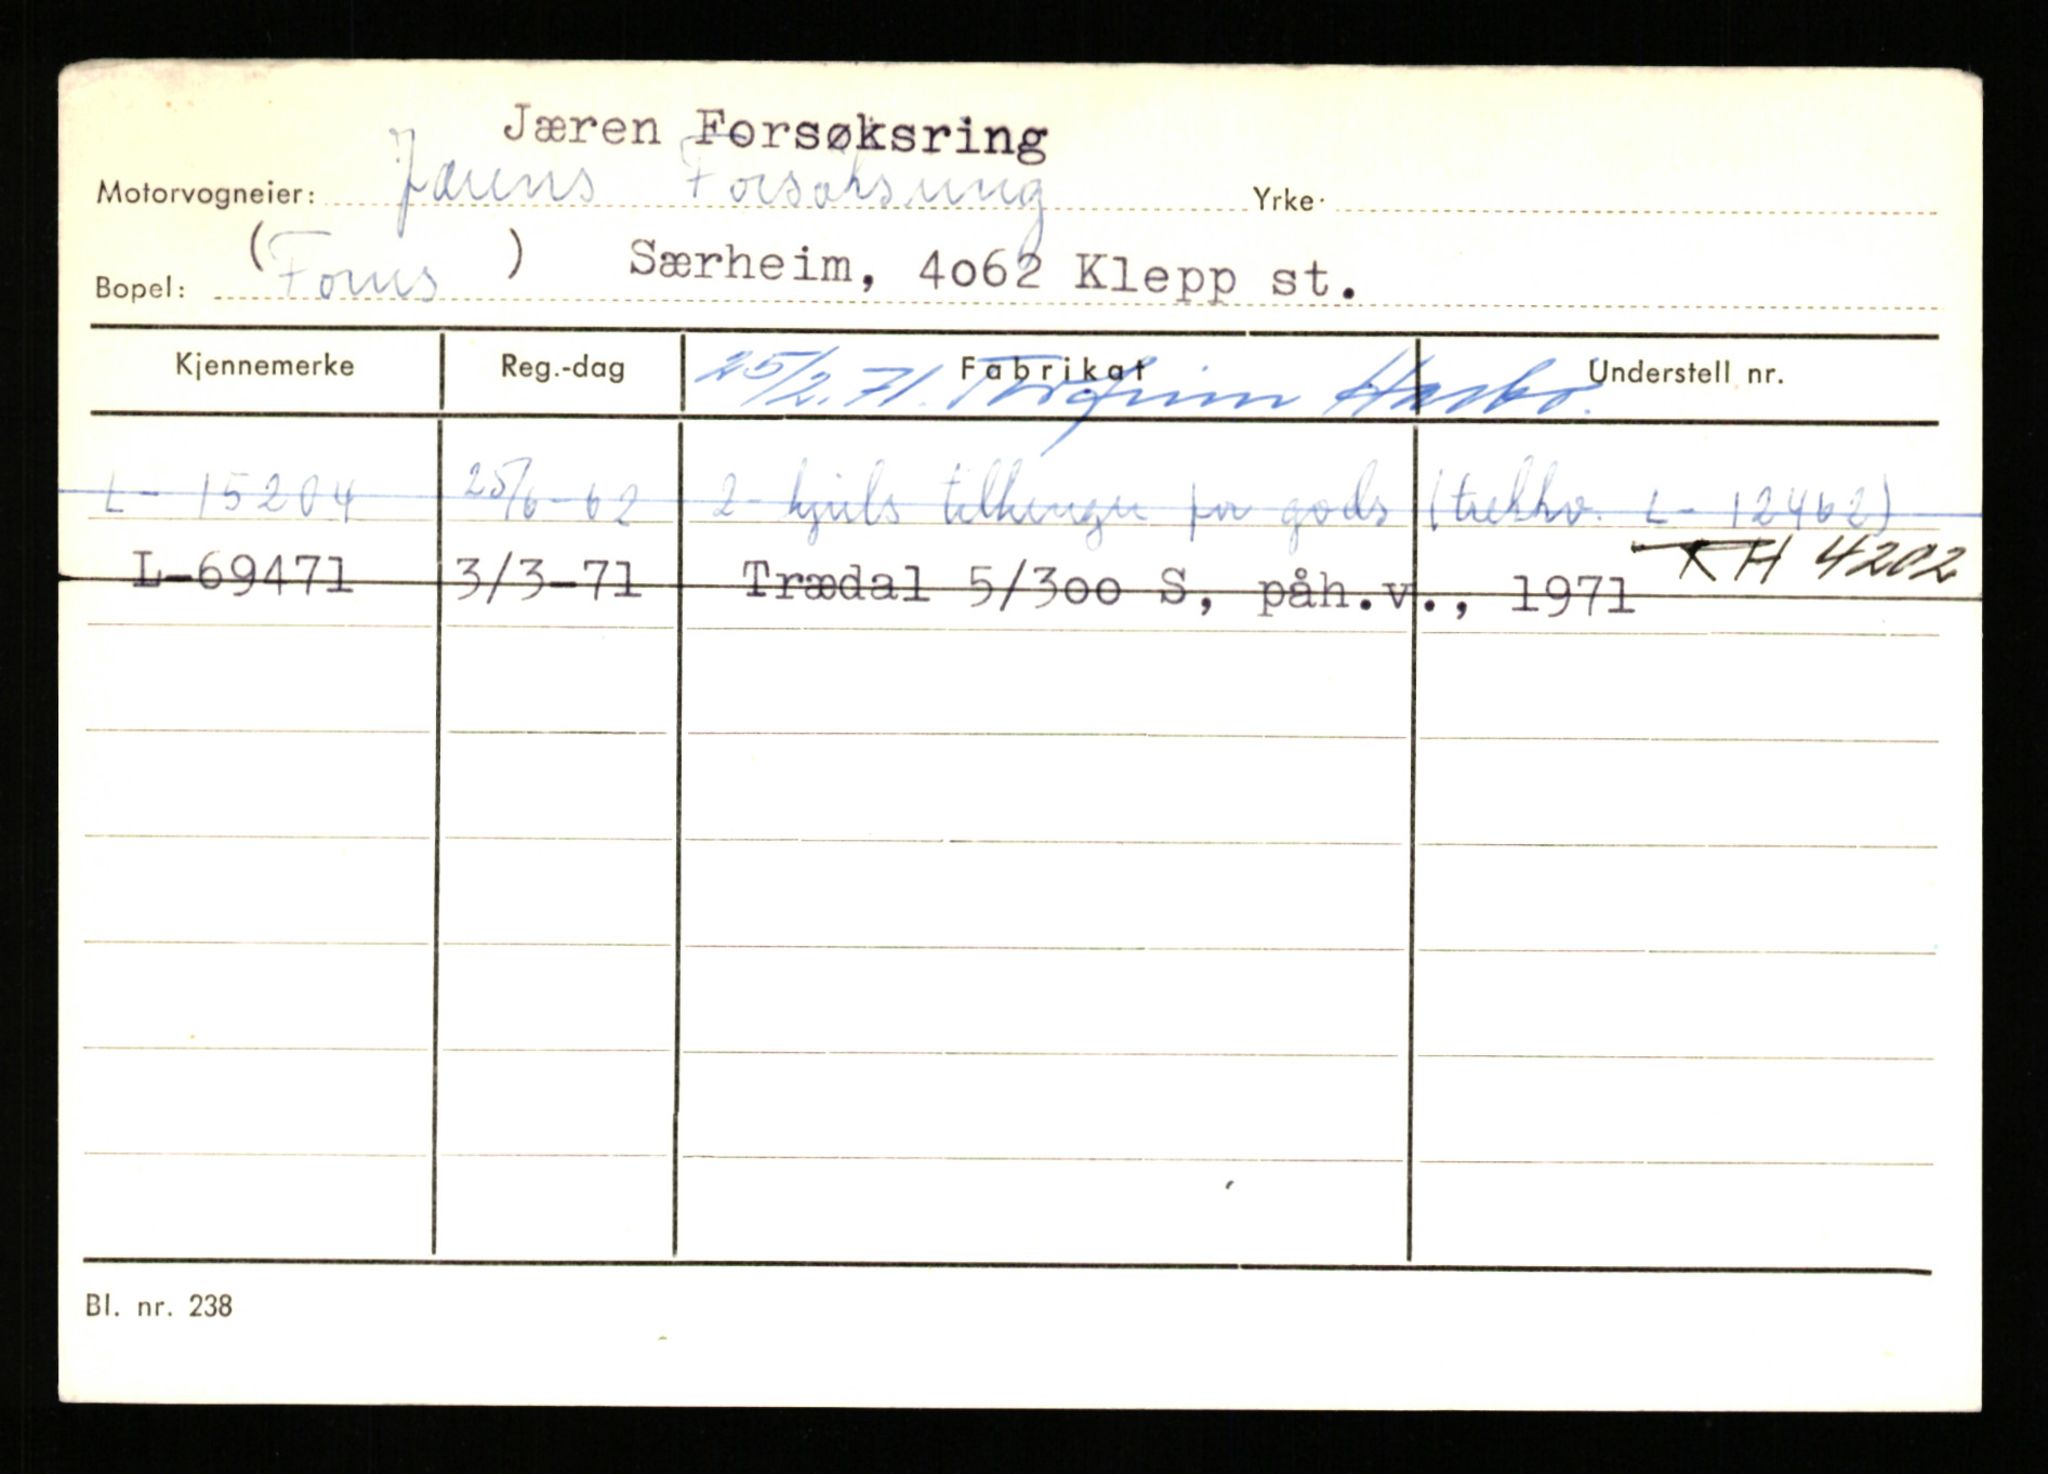 Jæren Forsøksring
Motorvogneier: Jærens Forsøksring Yrke
Bopel: (Forus) Særheim, 4062 Klepp st.
Kjennemerke Reg.-dag Fabrikat Understell nr.
25/2.71. Torfinn
L - 15204 25/6-62 2-hjuls tilhenger for gods (trekkv. L-12462)
KH 4202
L-69471 3/3-71 Trædal 5/300 S, påh.v., 1971
Bl. nr. 238